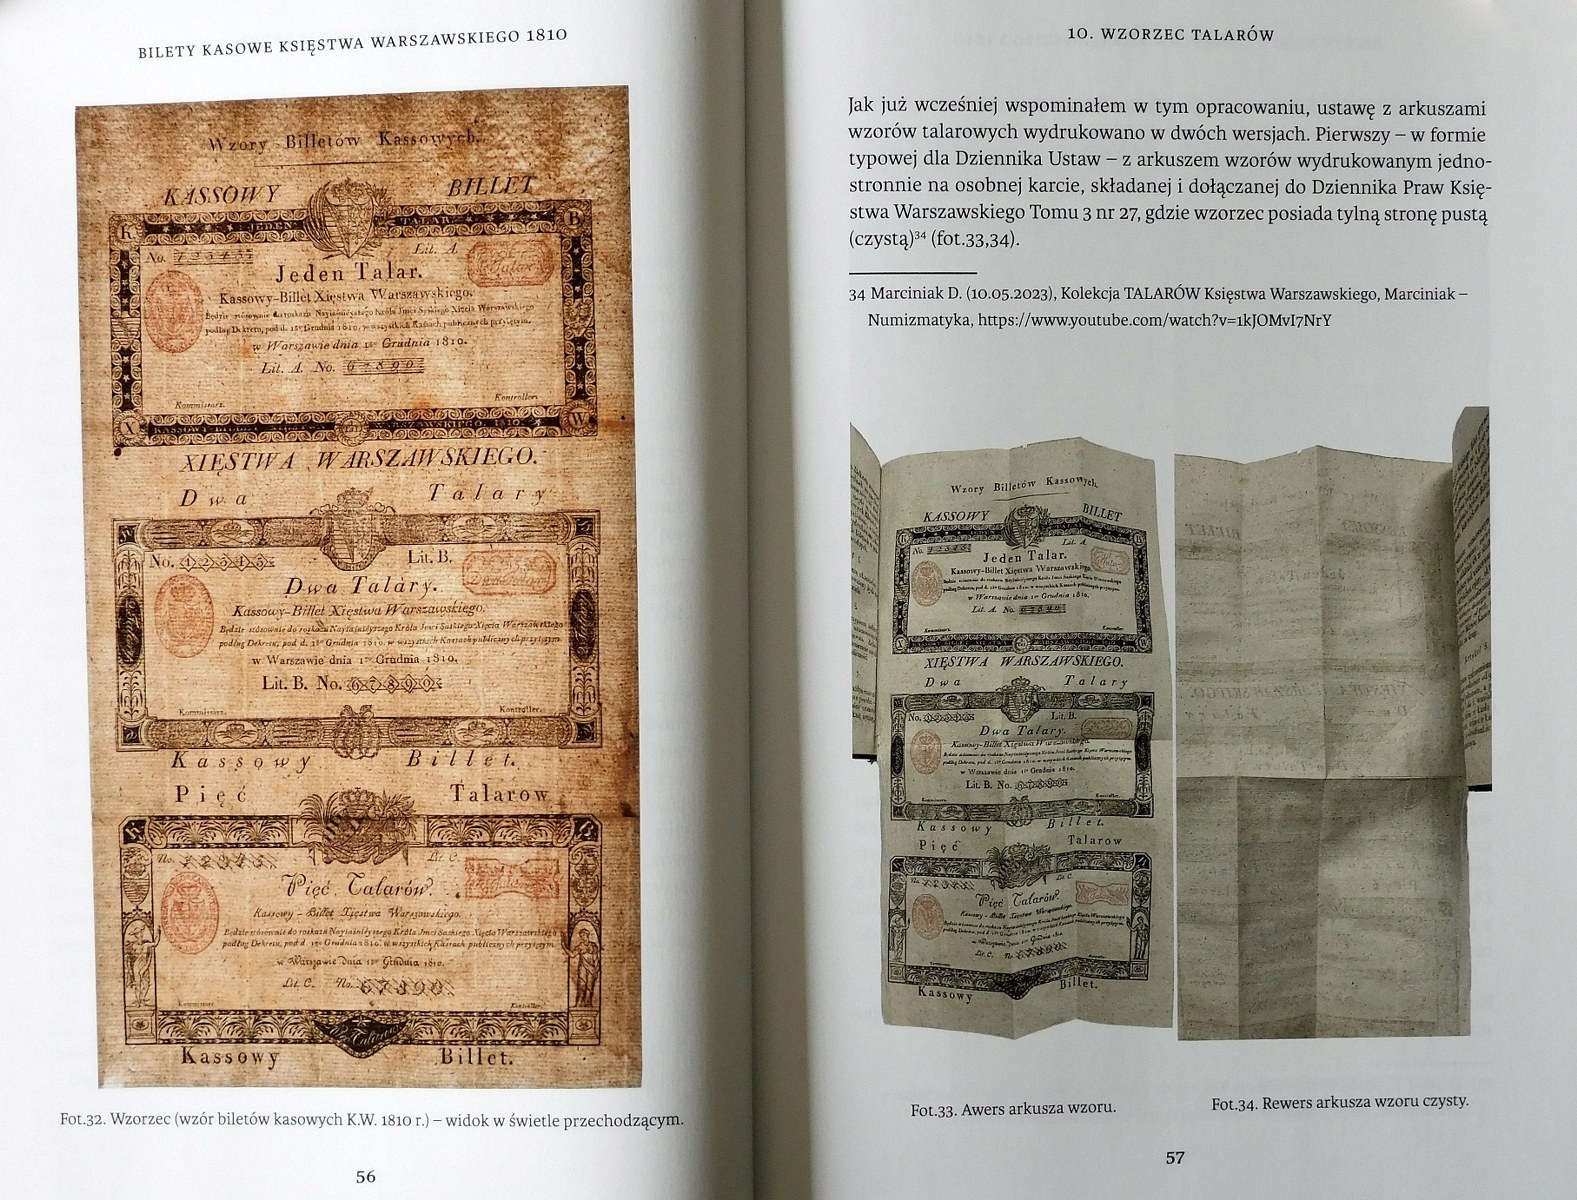 BILETY KASOWE KSIĘSTWA WARSZAWSKIEGO 1810
Wzory Billetów Kassowych.
KASSOWY BILLET
JEDEN TALAR
K B
No. 12345 Lit. A.
Talar
Jeden Talar.
Kassowy-Billet Xięstwa Warszawskiego.
Będzie stósownie do roskazu Nayiaśnieyszego Króla Jmci Saskiego Xięcia Warszawskiego
podług Dekretu, pod d. 1go Grudnia 1810, w wszystkich Kassach publicznych przyiętym.
w Warszawie dnia 1go Grudnia 1810.
Lit. A. No. 67890
Kommissarz. Kontroller.
X W
KASSOWY BILLET WARSZAWSKIEGO. 1810
XIĘSTWA WARSZAWSKIEGO.
Dwa Talary
No. 12345 Lit. B.
Dwa Talary.
Kassowy-Billet Xięstwa Warszawskiego.
Będzie stósownie do roskazu Nayiaśnieyszego Króla Jmci Saskiego Xięcia Warszawskiego
podług Dekretu, pod d. 1go Grudnia 1810. w wszystkich Kassach publicznych przyiętym.
w Warszawie dnia 1go Grudnia 1810.
Lit. B. No. 67890
Kommissarz. Kontroller.
Kassowy Billet.
Pięć Talarow
No. 12345 Lit. C.
Pięć Talarów.
Kassowy-Billet Xięstwa Warszawskiego.
Będzie stósownie do roskazu Nayiaśnieyszego Króla Jmci Saskiego Xięcia Warszawskiego
podług Dekretu, pod d. 1go Grudnia 1810. w wszystkich Kassach publicznych przyiętym.
w Warszawie dnia 1go Grudnia 1810.
Lit. C. No. 67890
Kommissarz Kontroller.
Kassowy Billet.
Fot.32. Wzorzec (wzór biletów kasowych K.W. 1810 r.) – widok w świetle przechodzącym.
56
10. WZORZEC TALARÓW
Jak już wcześniej wspominałem w tym opracowaniu, ustawę z arkuszami
wzorów talarowych wydrukowano w dwóch wersjach. Pierwszy – w formie
typowej dla Dziennika Ustaw – z arkuszem wzorów wydrukowanym jedno-
stronnie na osobnej karcie, składanej i dołączanej do Dziennika Praw Księ-
stwa Warszawskiego Tomu 3 nr 27, gdzie wzorzec posiada tylną stronę pustą
(czystą)³⁴ (fot.33,34).
34 Marciniak D. (10.05.2023), Kolekcja TALARÓW Księstwa Warszawskiego, Marciniak –
Numizmatyka, https://www.youtube.com/watch?v=1kJOMvI7NrY
Wzory Billetów Kassowych
KASSOWY BILLET
No. 12345 Lit. A
Jeden Talar.
Kassowy-Billet Xięstwa Warszawskiego.
w Warszawie dnia 1go Grudnia 1810.
Lit. A. No. 67890
XIĘSTWA WARSZAWSKIEGO.
Dwa Talary
No. 12345 Lit. B.
Dwa Talary.
Kassowy-Billet Xięstwa Warszawskiego.
w Warszawie dnia 1go Grudnia 1810.
Lit. B. No. 67890
Kassowy Billet.
Pięć Talarow
Pięć Talarów.
Kassowy-Billet Xięstwa Warszawskiego.
Lit. C. No. 67890
Kassowy Billet.
Fot.33. Awers arkusza wzoru.
Fot.34. Rewers arkusza wzoru czysty.
57